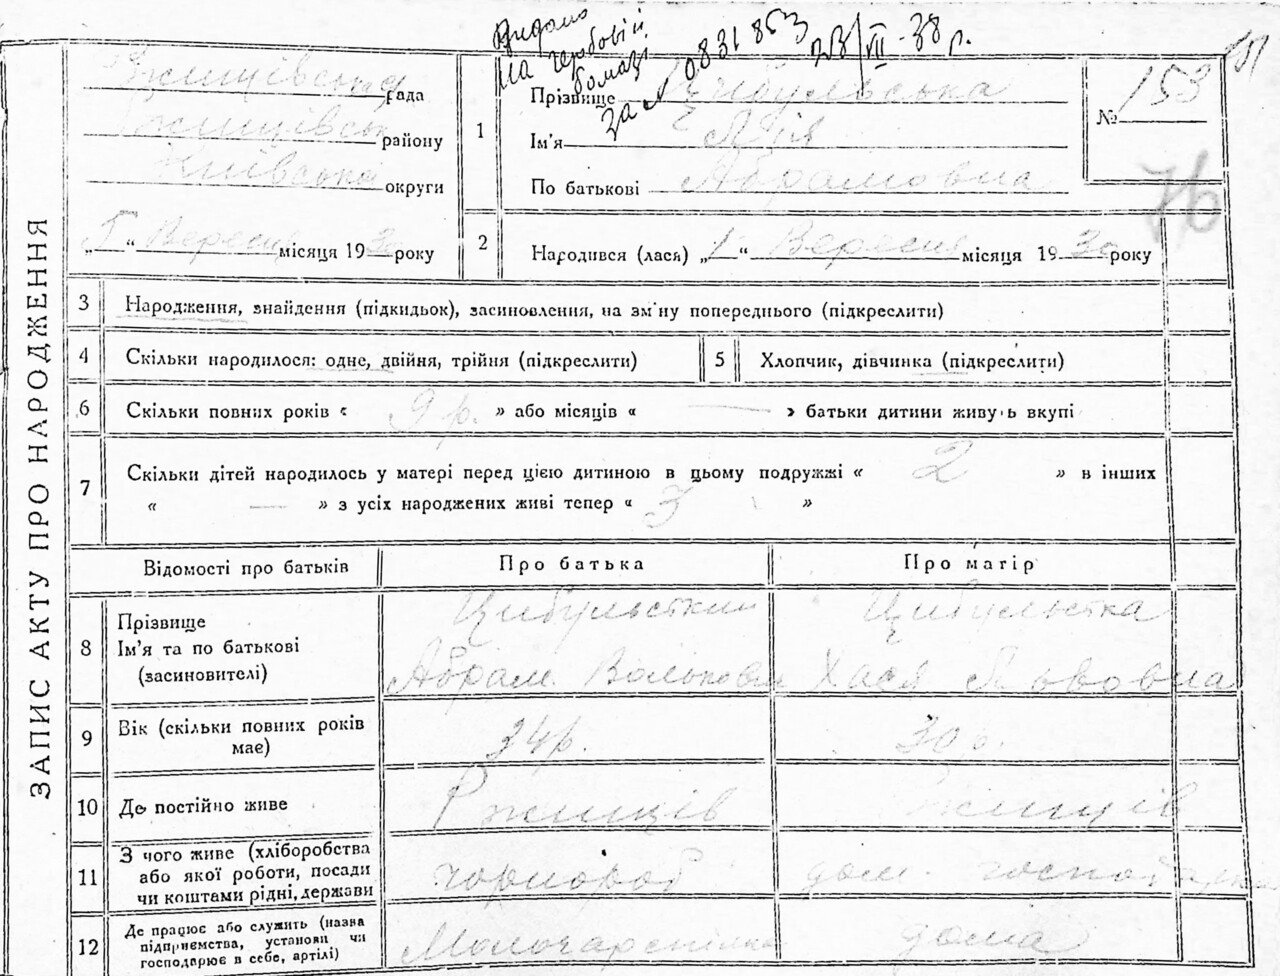 Видано
на гербовій
бомазі
за № 0831853 23/VII-38 р.
Ржищівська рада
Ржищівськ району
Київська округи
„5“ Вересня місяця 1930 року
1
Прізвище Цибульська
Ім'я Лія
По батькові Абрамовна
№ 153
76
2
Народився (лася) „1“ Вересня місяця 1930 року
ЗАПИС АКТУ ПРО НАРОДЖЕННЯ
3 Народження, знайдення (підкидьок), засиновлення, на зміну попереднього (підкреслити)
4 Скільки народилося: одне, двійня, трійня (підкреслити)
5 Хлопчик, дівчинка (підкреслити)
6 Скільки повних років « 9 р. » або місяців « — » батьки дитини живуть вкупі
7 Скільки дітей народилось у матері перед цією дитиною в цьому подружжі « 2 » в інших
« — » з усіх народжених живі тепер « 3 »
Відомості про батьків Про батька Про матір
8 Прізвище
Ім'я та по батькові
(засиновителі)
Цибульський
Абрам Волькович
Цибульська
Хася Львовна
9 Вік (скільки повних років
має)
34р. 30р.
10 Де постійно живе Ржищів Ржищів
11 З чого живе (хліборобства
або якої роботи, посади
чи коштами рідні, держави
чорнороб дом. господарка
12 Де працює або служить (назва
підприємства, установи чи
господарює в себе, артілі)
Молочарспілка дома